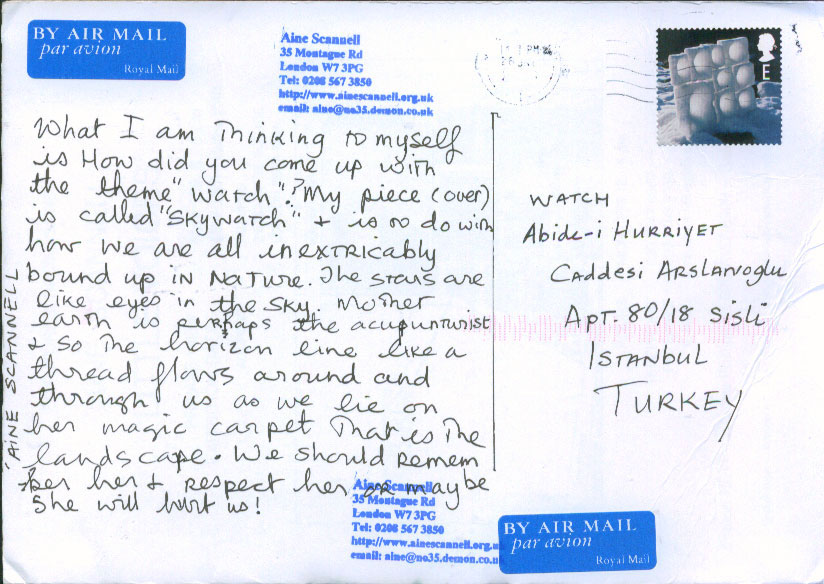 BY AIR MAIL
par avion
Royal Mail
Aine Scannell
35 Montague Rd
London W7 3PG
Tel: 0208 567 3850
http://www.ainescannell.org.uk
email: aine@no35.demon.co.uk
E
What I am Thinking to myself
is How did you come up with
the theme "Watch"? My piece (over)
is called "SKYWATCH" + is to do with
how we are all inextricably
bound up in NATURE. The stars are
like eyes in the sky. Mother
earth is perhaps the acupunturist
+ so The horizon line like a
thread flows around and
through us as we lie on
her magic carpet That is The
landscape. We should remem
ber her + respect her or maybe
She will hurt us!
AINE SCANNELL
WATCH
Abide-i HURRIYET
Caddesi ARSLANOGLU
APT. 80/18 SISLI
ISTANBUL
TURKEY
Aine Scannell
35 Montague Rd
London W7 3PG
Tel: 0208 567 3850
http://www.ainescannell.org.uk
email: aine@no35.demon.co.uk
BY AIR MAIL
par avion
Royal Mail